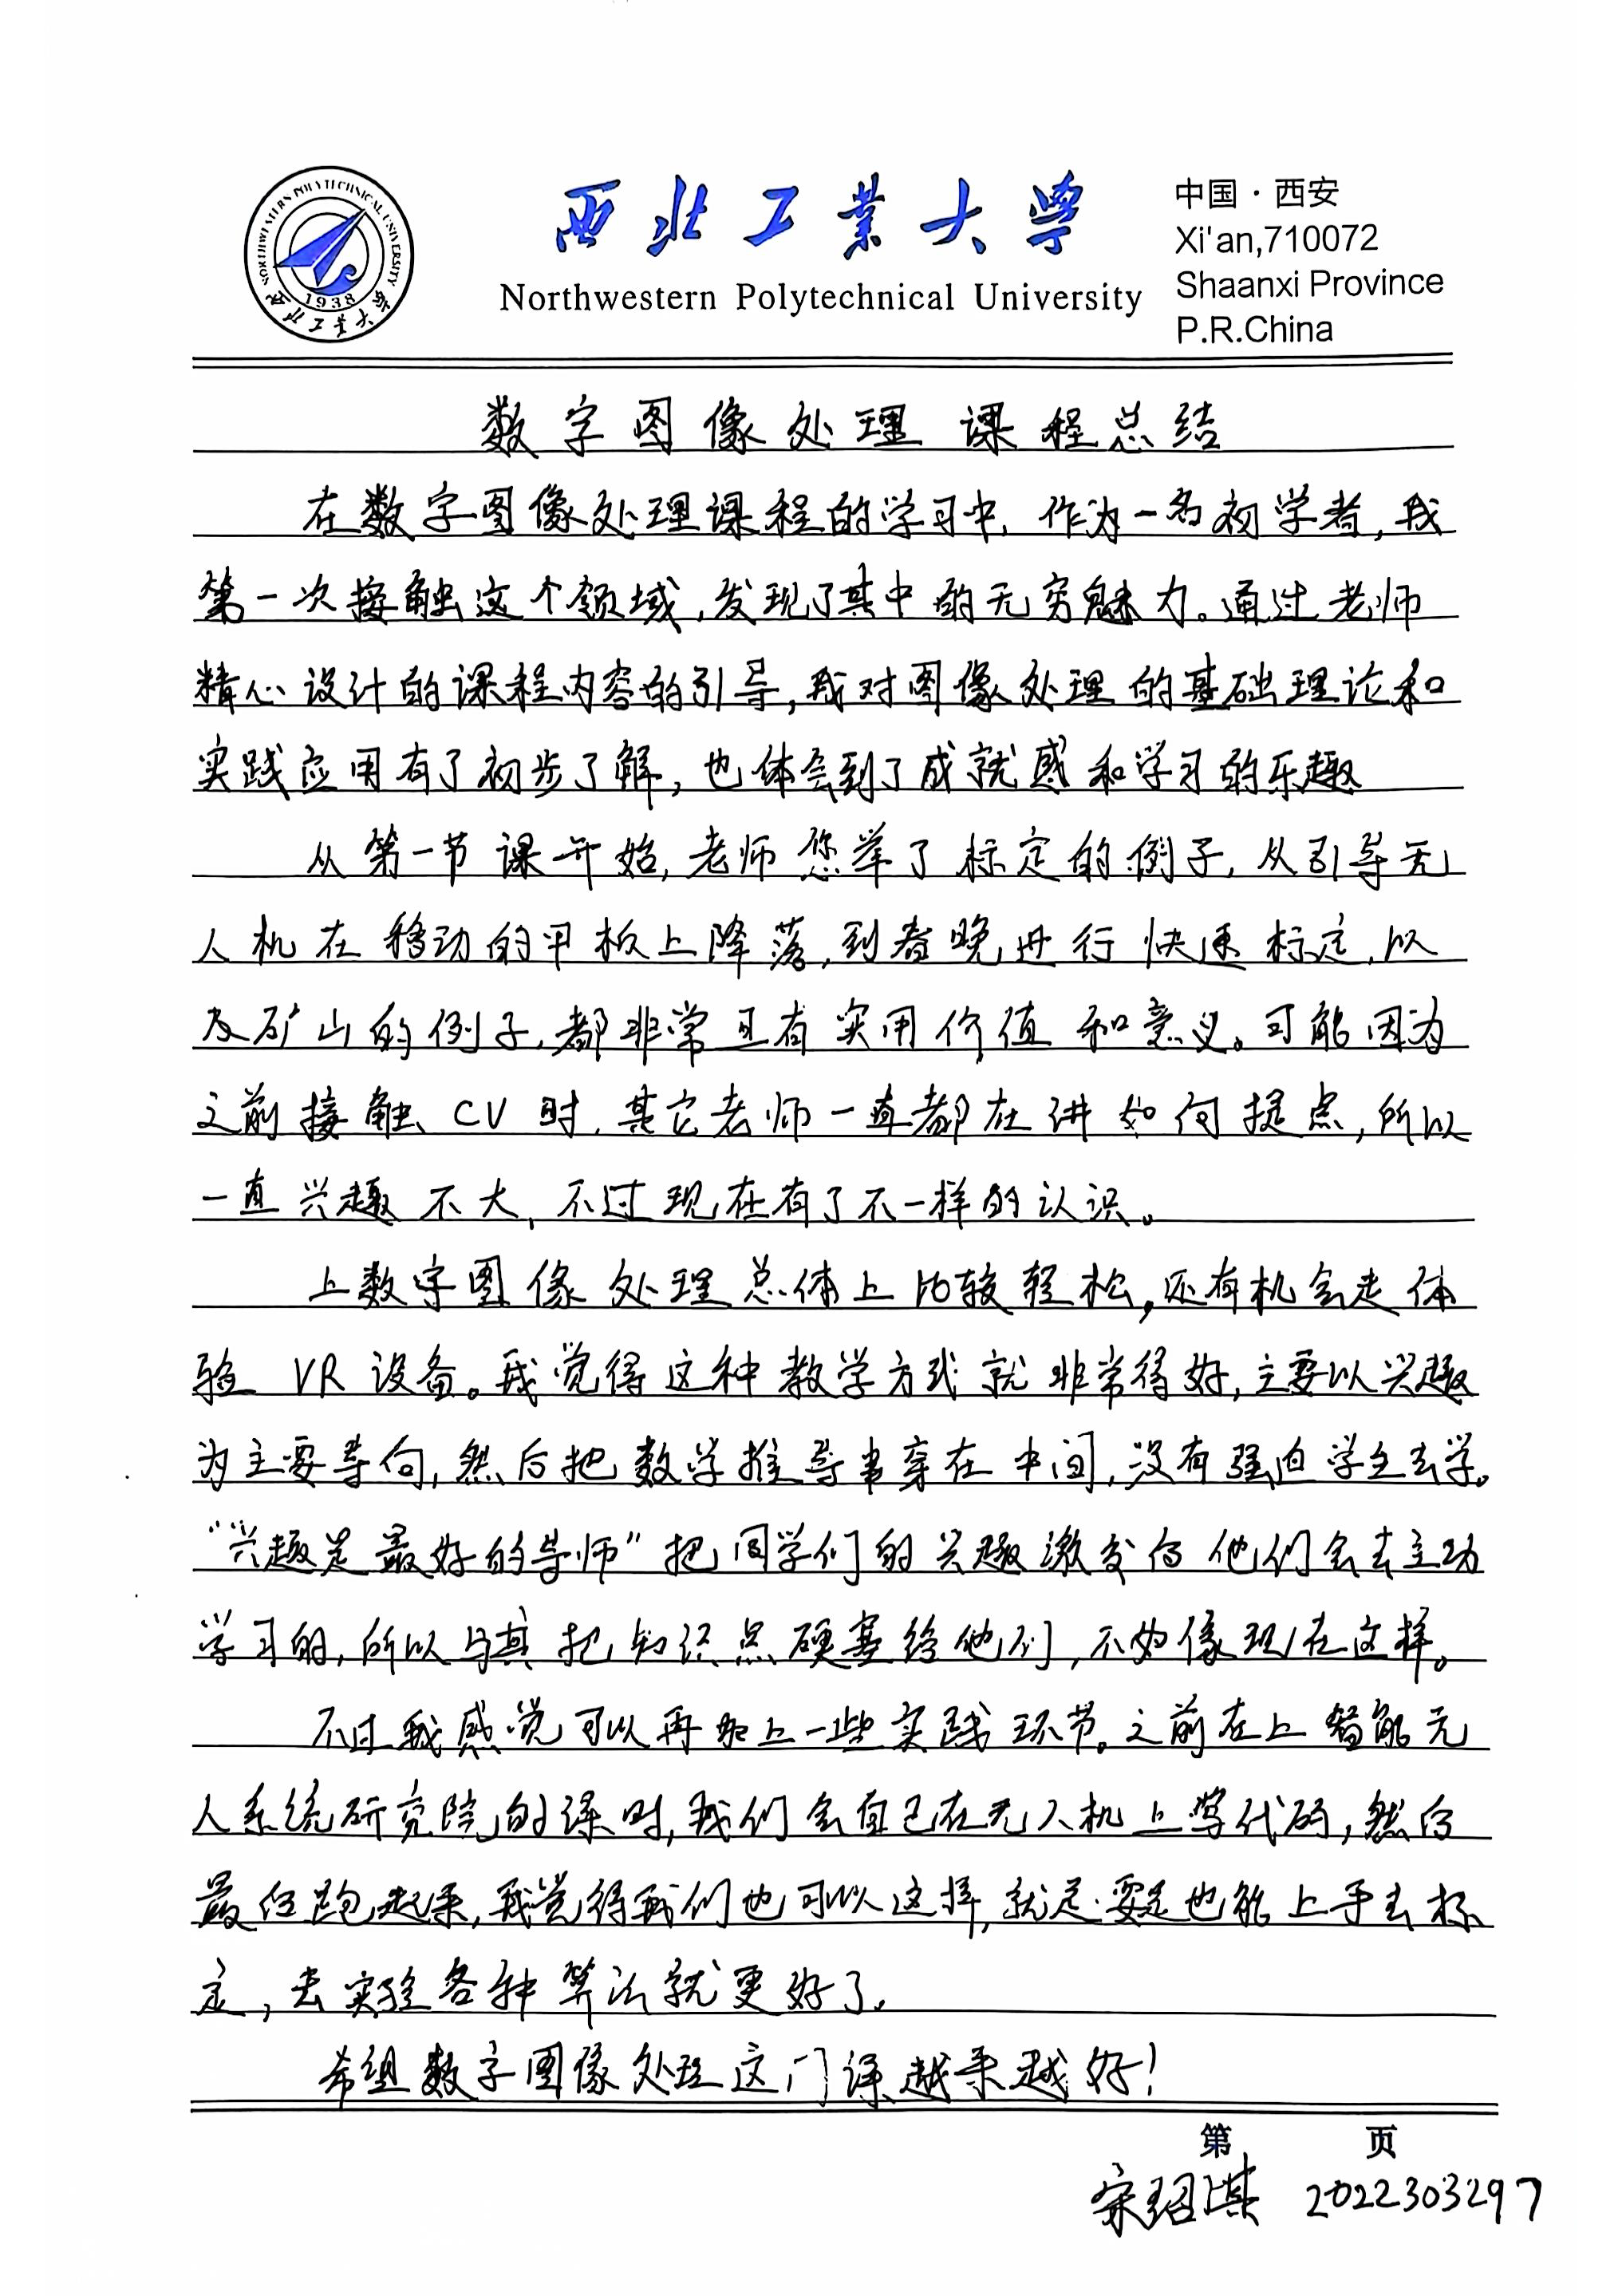 NORTHWESTERN POLYTECHNICAL UNIVERSITY
1938
西北工业大学
西北工业大学
Northwestern Polytechnical University
中国·西安
Xi'an,710072
Shaanxi Province
P.R.China
数字图像处理 课程总结
在数字图像处理课程的学习中,作为一名初学者,我
第一次接触这个领域,发现了其中的无穷魅力。通过老师
精心设计的课程内容的引导,我对图像处理的基础理论和
实践应用有了初步了解,也体会到了成就感和学习的乐趣
从第一节课开始,老师您举了标定的例子,从引导无
人机在移动的甲板上降落,到春晚进行快速标定,以
及矿山的例子,都非常具有实用价值和意义。可能因为
之前接触CV时,其它老师一直都在讲如何提点,所以
一直兴趣不大,不过现在有了不一样的认识。
上数字图像处理总体上比较轻松,还有机会走体
验VR设备。我觉得这种教学方式就非常得好,主要以兴趣
为主要导向,然后把数学推导串穿在中间,没有强迫学生去学。
“兴趣是最好的导师”把同学们的兴趣激发后他们会去主动
学习的,所以与其把知识点硬塞给他们,不如像现在这样。
不过我感觉可以再加上一些实践环节。之前在上智能无
人系统研究院的课时,我们会自己在无人机上写代码,然后
最后跑起来,我觉得我们也可以这样,就是要是也能上手去标
定,去实验各种算法就更好了。
希望数字图像处理这门课越来越好!
第 页
宋绍淇 2022303297